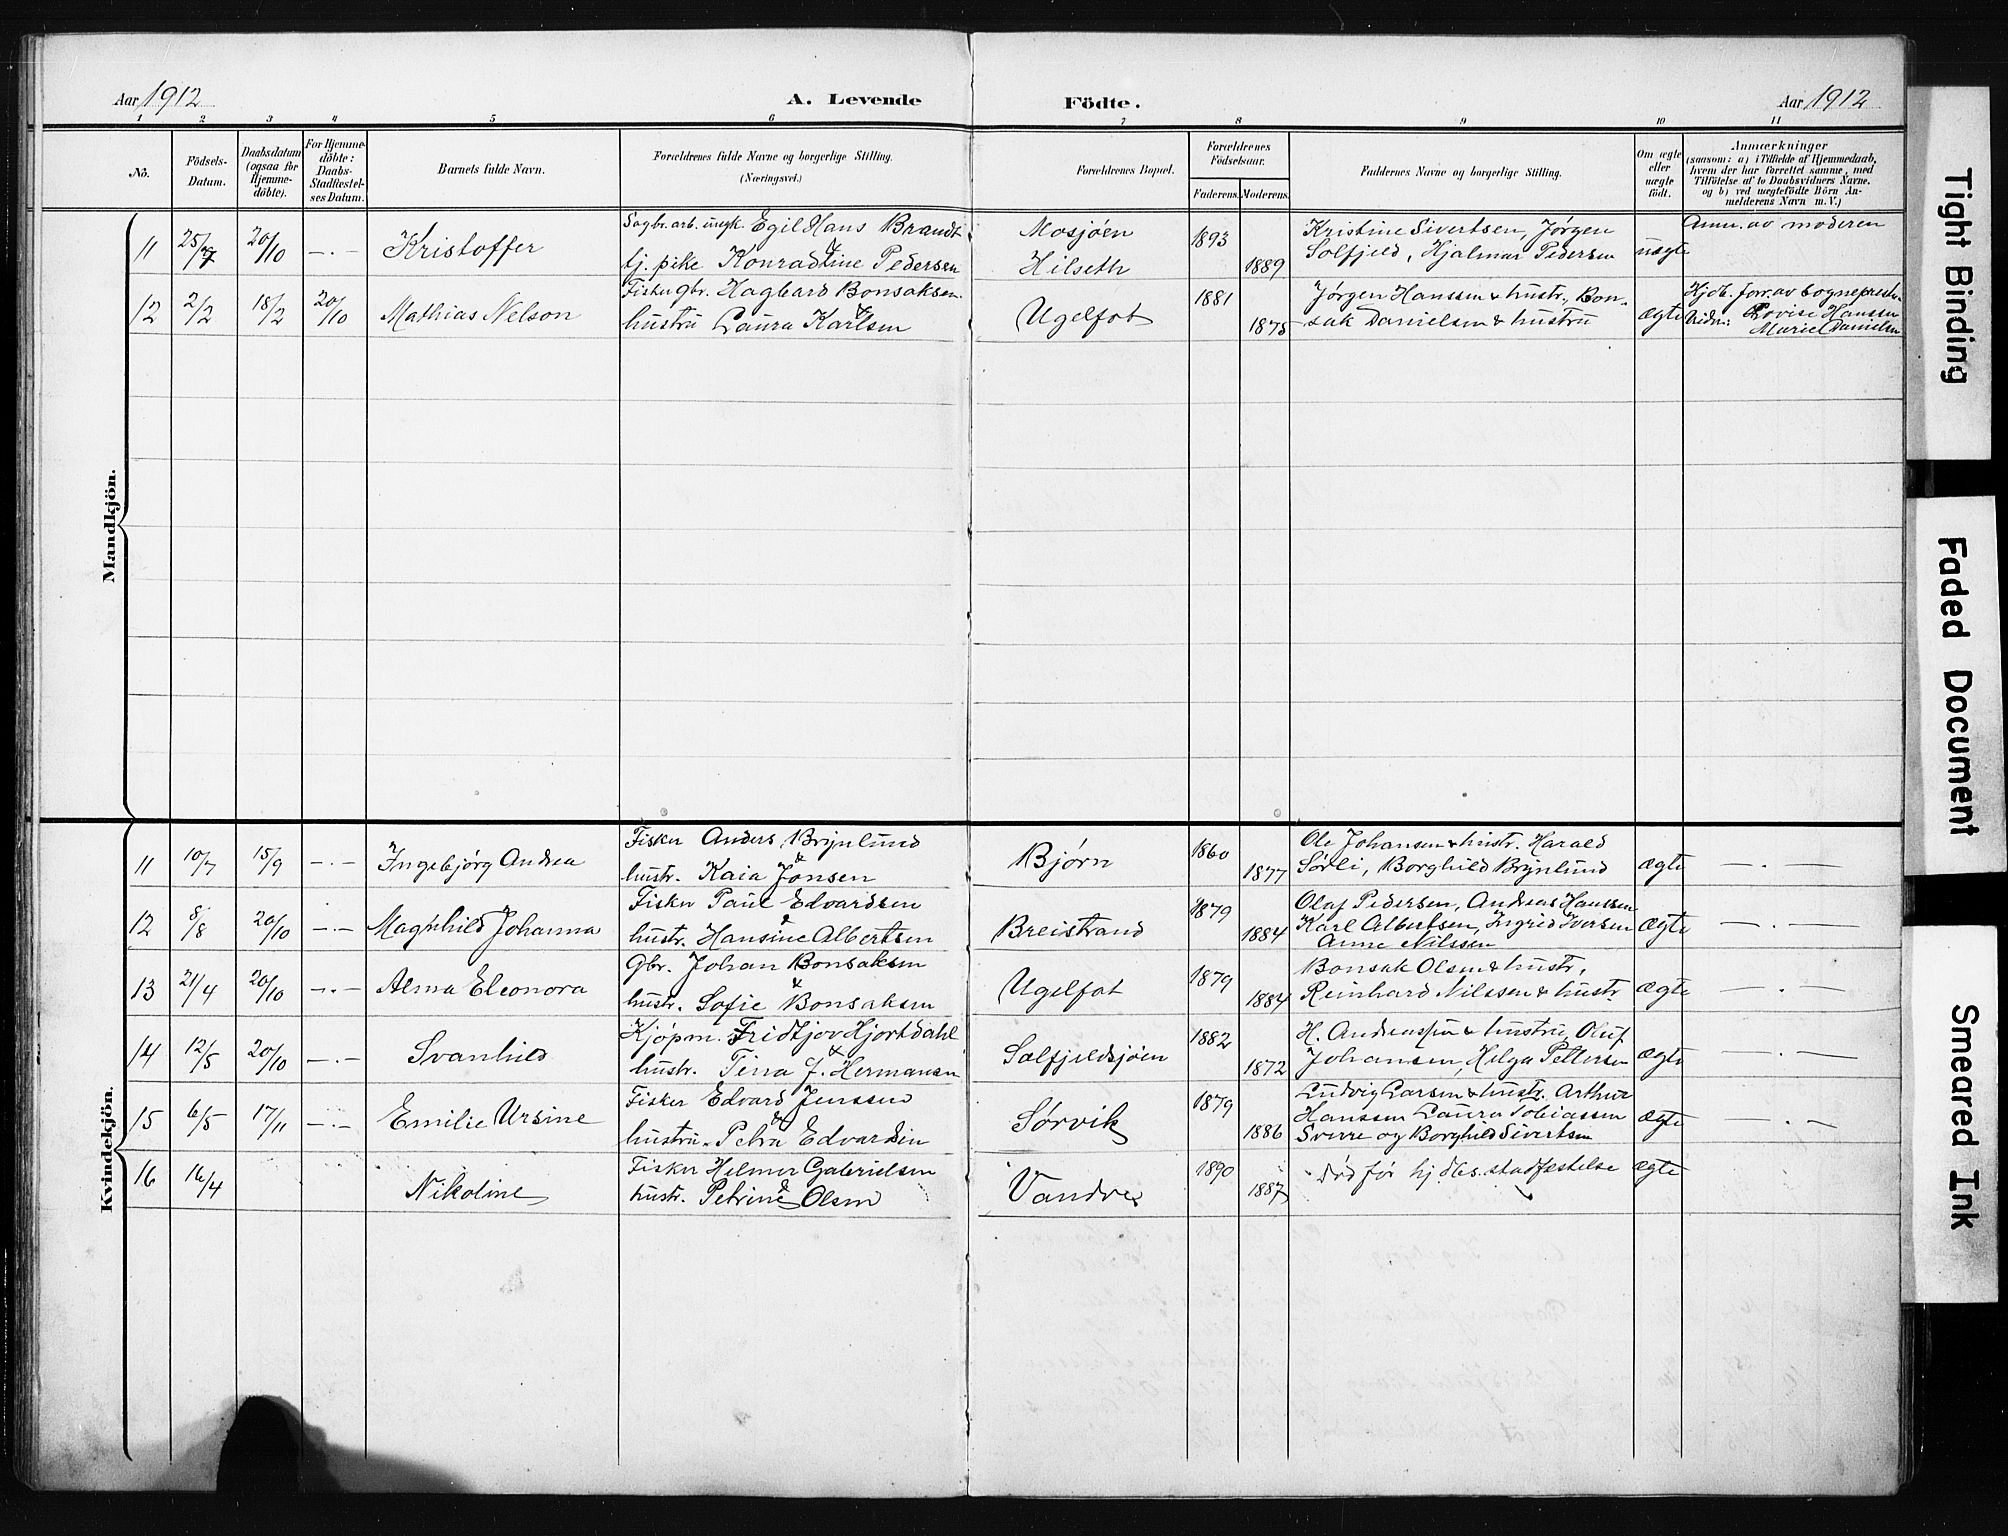 Aar 1912
A. Levende
Födte.
Aar 1912
1 2 3 4 5 6 7 8 9 10 11
No.
Födsels-Datum.
Daabsdatum (ogsaa for Hjemme-döbte).
For Hjemme-döbte: Daabs-Stadfæstel-ses Datum.
Barnets fulde Navn.
Forældrenes fulde Navne og borgerlige Stilling. (Næringsvei.)
Forældrenes Bopæl.
Forældrenes Födselsaar.
Faderens. Moderens.
Faddernes Navne og borgerlige Stilling.
Om ægte eller uægte födt.
Anmærkninger
(saasom: a) i Tilfælde af Hjemmedaab, hvem der har forrettet samme, med Tilföielse af to Daabsvidners Navne, og b) ved uægtefödte Börn Anmelderens Navn m. V.)
Mandkjön.
11 25/7 20/10 -.- Kristoffer
Sagbr.arb. ungk. Egil Hans Brandt &
tj. pike Konradine Pedersen
Mosjøen
Hilseth
1893
1889
Kristine Sivertsen, Jørgen
Solfjeld, Hjalmar Pedersen
uægte
Anm. av moderen
12 2/2 18/2 20/10 Mathias Nelson
Fisker gbr. Hagbard Bonsaksen &
hustru Laura Karlsen
Ugelfot
1881
1875
Jørgen Hanssen & hustr., Bon-
sak Danielsen & hustru
ægte
Hjdb. forr. av sognepresten
Vidn: Lovise Hanssen
Marie Danielsen
Kvindekjön.
11 10/7 15/9 -.- Ingebjørg Andrea
Fisker Anders Brynlund &
hustr. Kaia Jonsen
Bjørn
1860
1877
Ole Johansen & hustr. Harald
Sørli, Borghild Brynlund
ægte -.-
12 8/8 20/10 -.- Magnhild Johanna
Fisker Paul Edvardsen &
hustr. Hansine Albertsen
Breistrand
1879
1884
Olaf Pedersen, Andreas Hanssen
Karl Albertsen, Ingrid Iversen
Anne Nilssen
ægte -.-
13 21/4 20/10 -.- Alma Eleonora
Gbr. Johan Bonsaksen &
hustr. Sofie Bonsaksen
Ugelfot
1879
1884
Bonsak Olsen & hustr,
Reinhard Nilssen & hustr
ægte -.-
14 12/5 20/10 -.- Svanhild
Kjøpm. Fridtjov Hjortdahl &
hustr. Tina J. Hermansen
Solfjeldsjøen
1882
1872
H. Andreassen & hustru Oluf
Johansen, Helga Pettersen
ægte -.-
15 6/5 17/11 -.- Emilie Ursine
Fisker Edvard Jenssen &
hustru Petra Edvardsen
Sørvik
1879
1886
Ludvig Larsen & hustr. Arthur
Hanssen Laura Tobiassen
Sverre og Borghild Sivertsen
ægte -.-
16 16/4 Nikoline
Fisker Helmer Gabrielsen &
hustr. Petrine Olsen
Vandve
1890
1887
Død før hj.dbs. stadfæstelse
ægte
Tight Binding
Faded Document
Smeared Ink